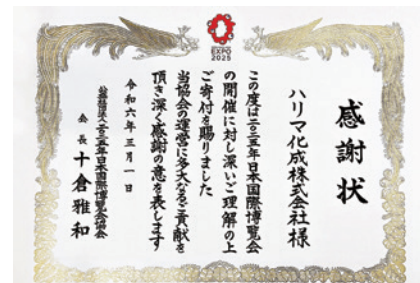 EXPO
2025
感謝状
ハリマ化成株式会社様
この度は二〇二五年日本国際博覧会
の開催に対し深いご理解の上
ご寄付を賜りました
当協会の運営に多大なるご貢献を
頂き深く感謝の意を表します
令和六年三月一日
公益社団法人二〇二五年日本国際博覧会協会
会長 十倉雅和